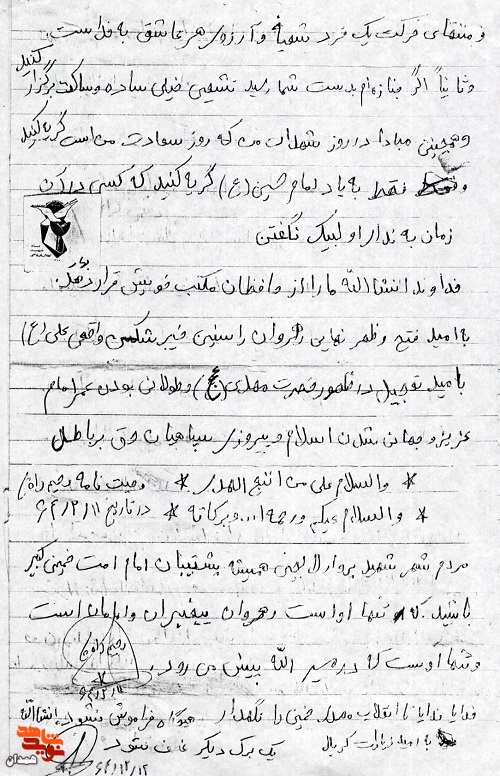 و منتهای حرکت یک فرد شیعه و آرزوی هر عاشق به خداست.
و ثانیاً اگر جنازه‌ام بدست شما رسید تشییعی خیلی ساده و ساکت برگزار کنید
و همچنین مبادا در روز شهادت من که روز سعادت من است گریه کنید
و فقط به یاد امام حسین (ع) گریه کنید که کسی در آن
زمان به ندای او لبیک نگفتن
خداوند انشاالله ما را از حافظان مکتب خویش قرار دهد
به امید فتح و ظفر نهایی رهروان راستین خیبر شکن واقعی علی (ع)
با امید تعجیل در ظهور حضرت مهدی (عج) و طولانی بودن عمر امام
عزیز و جهانی شدن اسلام و پیروزی سپاهیان حق بر باطل
* والسلام علی من اتبع الهدی * وصیت نامه رحیم
* والسلام علیکم و رحمه ا... و برکاته * در تاریخ ۶۴/۲/۱۱
مردم شهر شهید پرور لالجین همیشه پشتیبان امام امت خمینی کبیر
باشید که تنها او است رهروان پیغمبران و امامان است
و تنها اوست که در مسیر الله پیش می رود.
رحیم
۶۴/۲/۱۱
خدایا خدایا تا انقلاب مهدی خمینی را نگهدار هیچگاه فراموش نشود. انشاالله
به امید زیارت کربلا یک برگ دیگر
۶۴/۱۲/۱۲
نوید شاهد
همدان